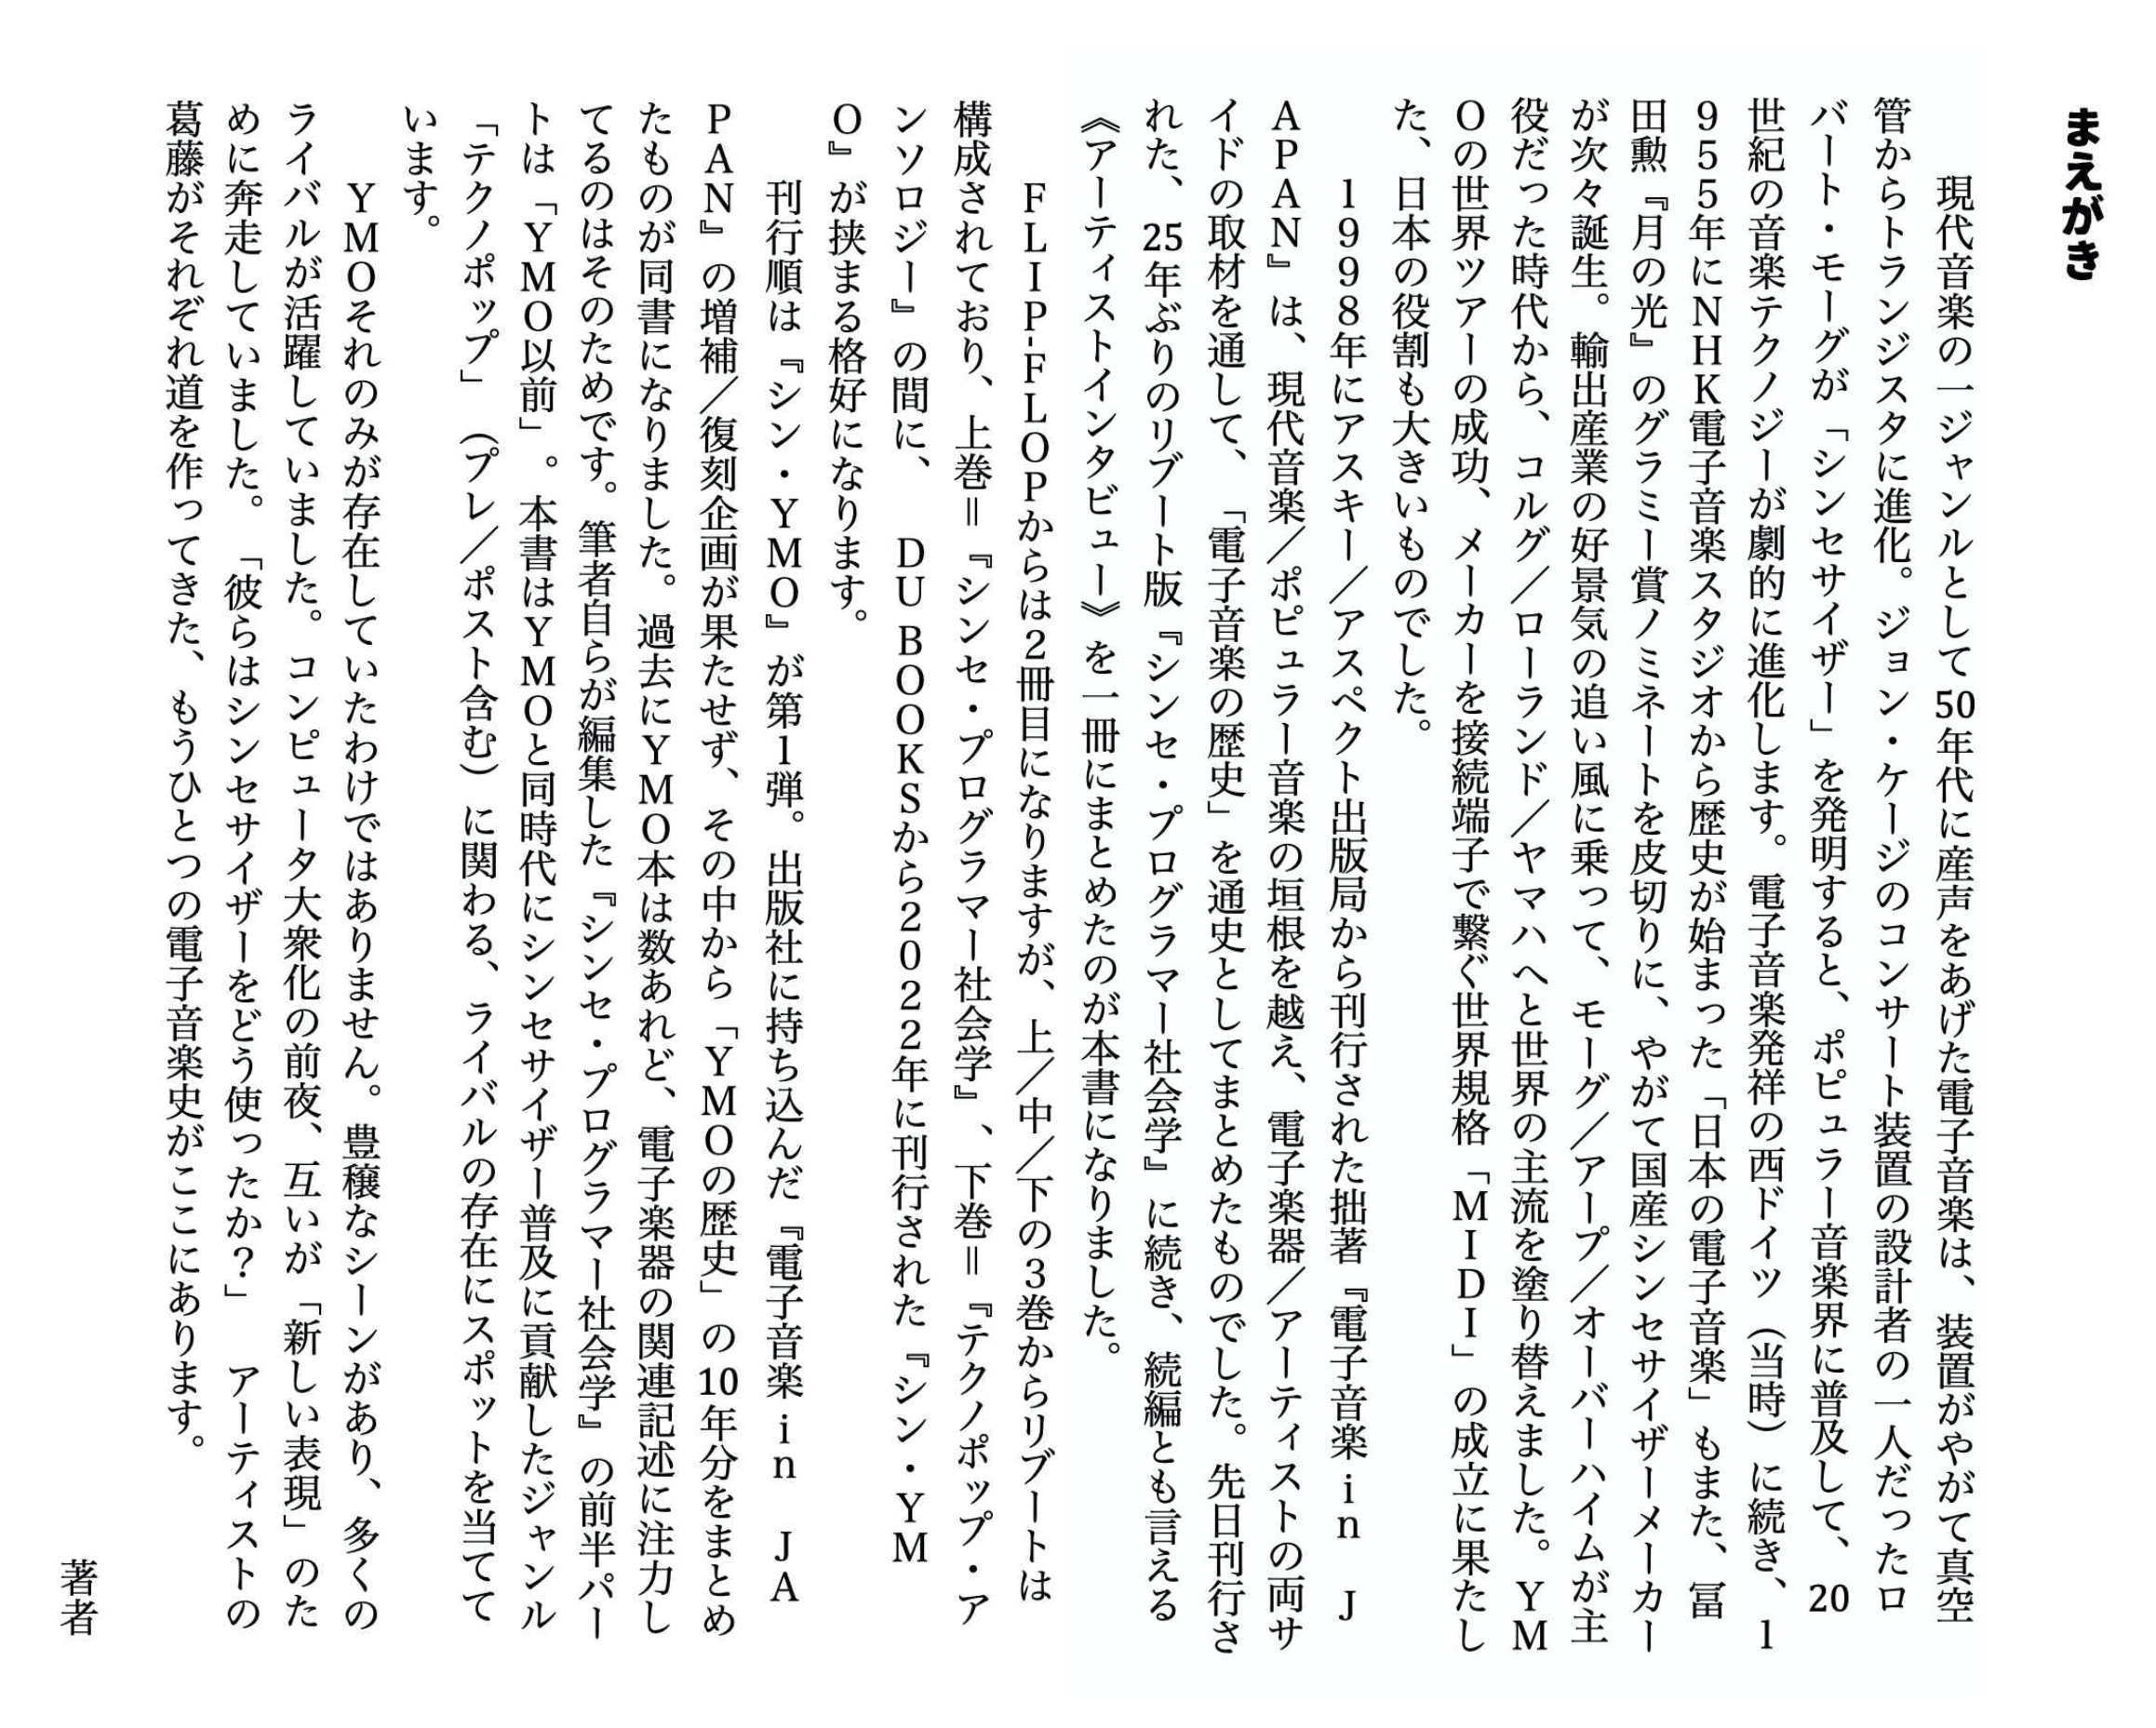 まえがき
現代音楽の一ジャンルとして50年代に産声をあげた電子音楽は、装置がやがて真空
管からトランジスタに進化。ジョン・ケージのコンサート装置の設計者の一人だったロ
バート・モーグが「シンセサイザー」を発明すると、ポピュラー音楽界に普及して、20
世紀の音楽テクノジーが劇的に進化します。電子音楽発祥の西ドイツ（当時）に続き、1
955年にNHK電子音楽スタジオから歴史が始まった「日本の電子音楽」もまた、冨
田勲『月の光』のグラミー賞ノミネートを皮切りに、やがて国産シンセサイザーメーカー
が次々誕生。輸出産業の好景気の追い風に乗って、モーグ／アープ／オーバーハイムが主
役だった時代から、コルグ／ローランド／ヤマハへと世界の主流を塗り替えました。YM
Oの世界ツアーの成功、メーカーを接続端子で繋ぐ世界規格「MIDI」の成立に果たし
た、日本の役割も大きいものでした。
1998年にアスキー／アスペクト出版局から刊行された拙著『電子音楽in J
APAN』は、現代音楽／ポピュラー音楽の垣根を越え、電子楽器／アーティストの両サ
イドの取材を通して、「電子音楽の歴史」を通史としてまとめたものでした。先日刊行さ
れた、25年ぶりのリブート版『シンセ・プログラマー社会学』に続き、続編とも言える
《アーティストインタビュー》を一冊にまとめたのが本書になりました。
FLIP-FLOPからは2冊目になりますが、上／中／下の3巻からリブートは
構成されており、上巻＝『シンセ・プログラマー社会学』、下巻＝『テクノポップ・ア
ンソロジー』の間に、DU BOOKSから2022年に刊行された『シン・YM
O』が挟まる格好になります。
刊行順は『シン・YMO』が第1弾。出版社に持ち込んだ『電子音楽in JA
PAN』の増補／復刻企画が果たせず、その中から「YMOの歴史」の10年分をまとめ
たものが同書になりました。過去にYMO本は数あれど、電子楽器の関連記述に注力し
てるのはそのためです。筆者自らが編集した『シンセ・プログラマー社会学』の前半パー
トは「YMO以前」。本書はYMOと同時代にシンセサイザー普及に貢献したジャンル
「テクノポップ」（プレ／ポスト含む）に関わる、ライバルの存在にスポットを当てて
います。
YMOそれのみが存在していたわけではありません。豊穣なシーンがあり、多くの
ライバルが活躍していました。コンピュータ大衆化の前夜、互いが「新しい表現」のた
めに奔走していました。「彼らはシンセサイザーをどう使ったか？」 アーティストの
葛藤がそれぞれ道を作ってきた、もうひとつの電子音楽史がここにあります。
著者